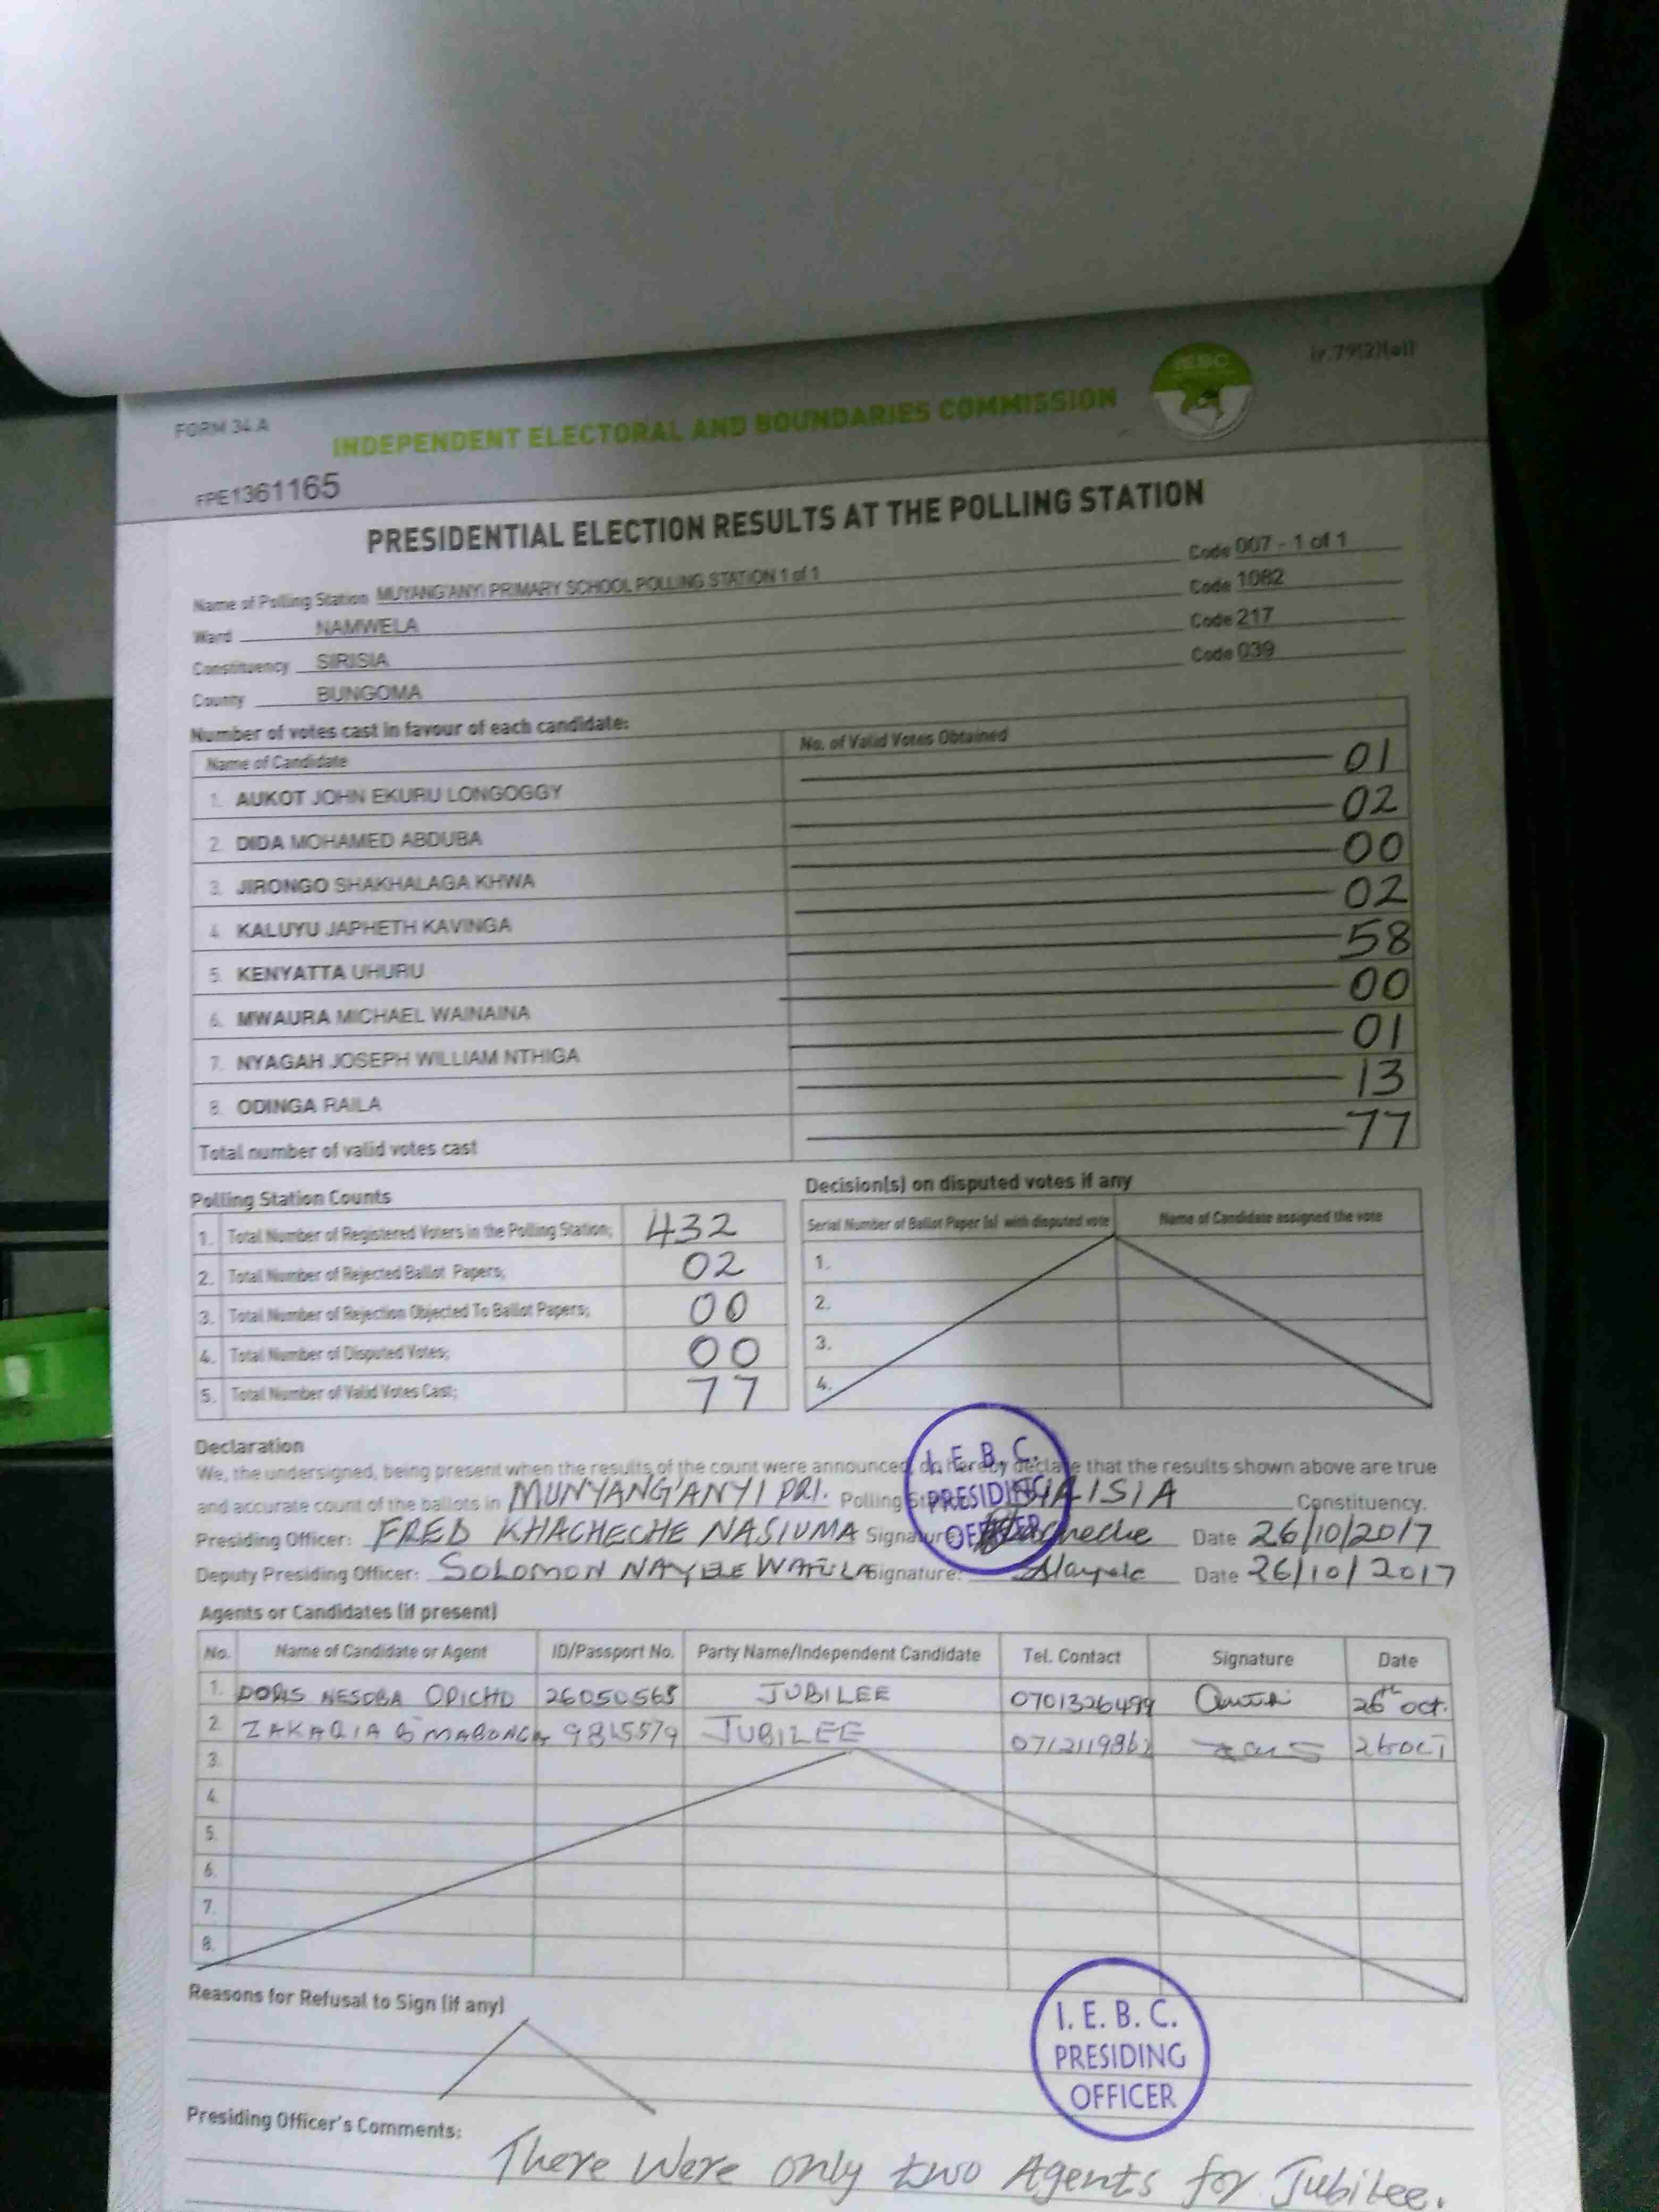 FORM 34.A
INDEPENDENT ELECTORAL AND BOUNDARIES COMMISSION
IEBC
(r.79(2)(a))
FPE1361165
PRESIDENTIAL ELECTION RESULTS AT THE POLLING STATION
Name of Polling Station MUYANG'ANYI PRIMARY SCHOOL POLLING STATION 1 of 1 Code 007 - 1 of 1
Ward NAMWELA Code 1082
Constituency SIRISIA Code 217
County BUNGOMA Code 039
Number of votes cast in favour of each candidate:
Name of Candidate No. of Valid Votes Obtained
1. AUKOT JOHN EKURU LONGOGGY 01
2. DIDA MOHAMED ABDUBA 02
3. JIRONGO SHAKHALAGA KHWA 00
4. KALUYU JAPHETH KAVINGA 02
5. KENYATTA UHURU 58
6. MWAURA MICHAEL WAINAINA 00
7. NYAGAH JOSEPH WILLIAM NTHIGA 01
8. ODINGA RAILA 13
Total number of valid votes cast 77
Polling Station Counts
1. Total Number of Registered Voters in the Polling Station; 432
2. Total Number of Rejected Ballot Papers; 02
3. Total Number of Rejection Objected To Ballot Papers; 00
4. Total Number of Disputed Votes; 00
5. Total Number of Valid Votes Cast; 77
Decision(s) on disputed votes if any
Serial Number of Ballot Paper (s) with disputed vote Name of Candidate assigned the vote
1.
2.
3.
4.
Declaration
We, the undersigned, being present when the results of the count were announced, do hereby declare that the results shown above are true
and accurate count of the ballots in MUNYANG'ANYI PRI. Polling SIRISIA Constituency.
Presiding Officer: FRED KHACHECHE NASIUMA Signature: Date 26/10/2017
Deputy Presiding Officer: SOLOMON NAYELE WAFULA Signature: Date 26/10/2017
I. E. B. C.
PRESIDING
OFFICER
Agents or Candidates (if present)
No. Name of Candidate or Agent ID/Passport No. Party Name/Independent Candidate Tel. Contact Signature Date
1. DORIS NESOBA OPICHO 26050565 JUBILEE 0701326499 26th oct.
2. ZAKARIA 9815579 JUBILEE 26 OCT
3.
4.
5.
6.
7.
8.
Reasons for Refusal to Sign (if any)
I. E. B. C.
PRESIDING
OFFICER
Presiding Officer's Comments:
There were only two Agents for Jubilee.